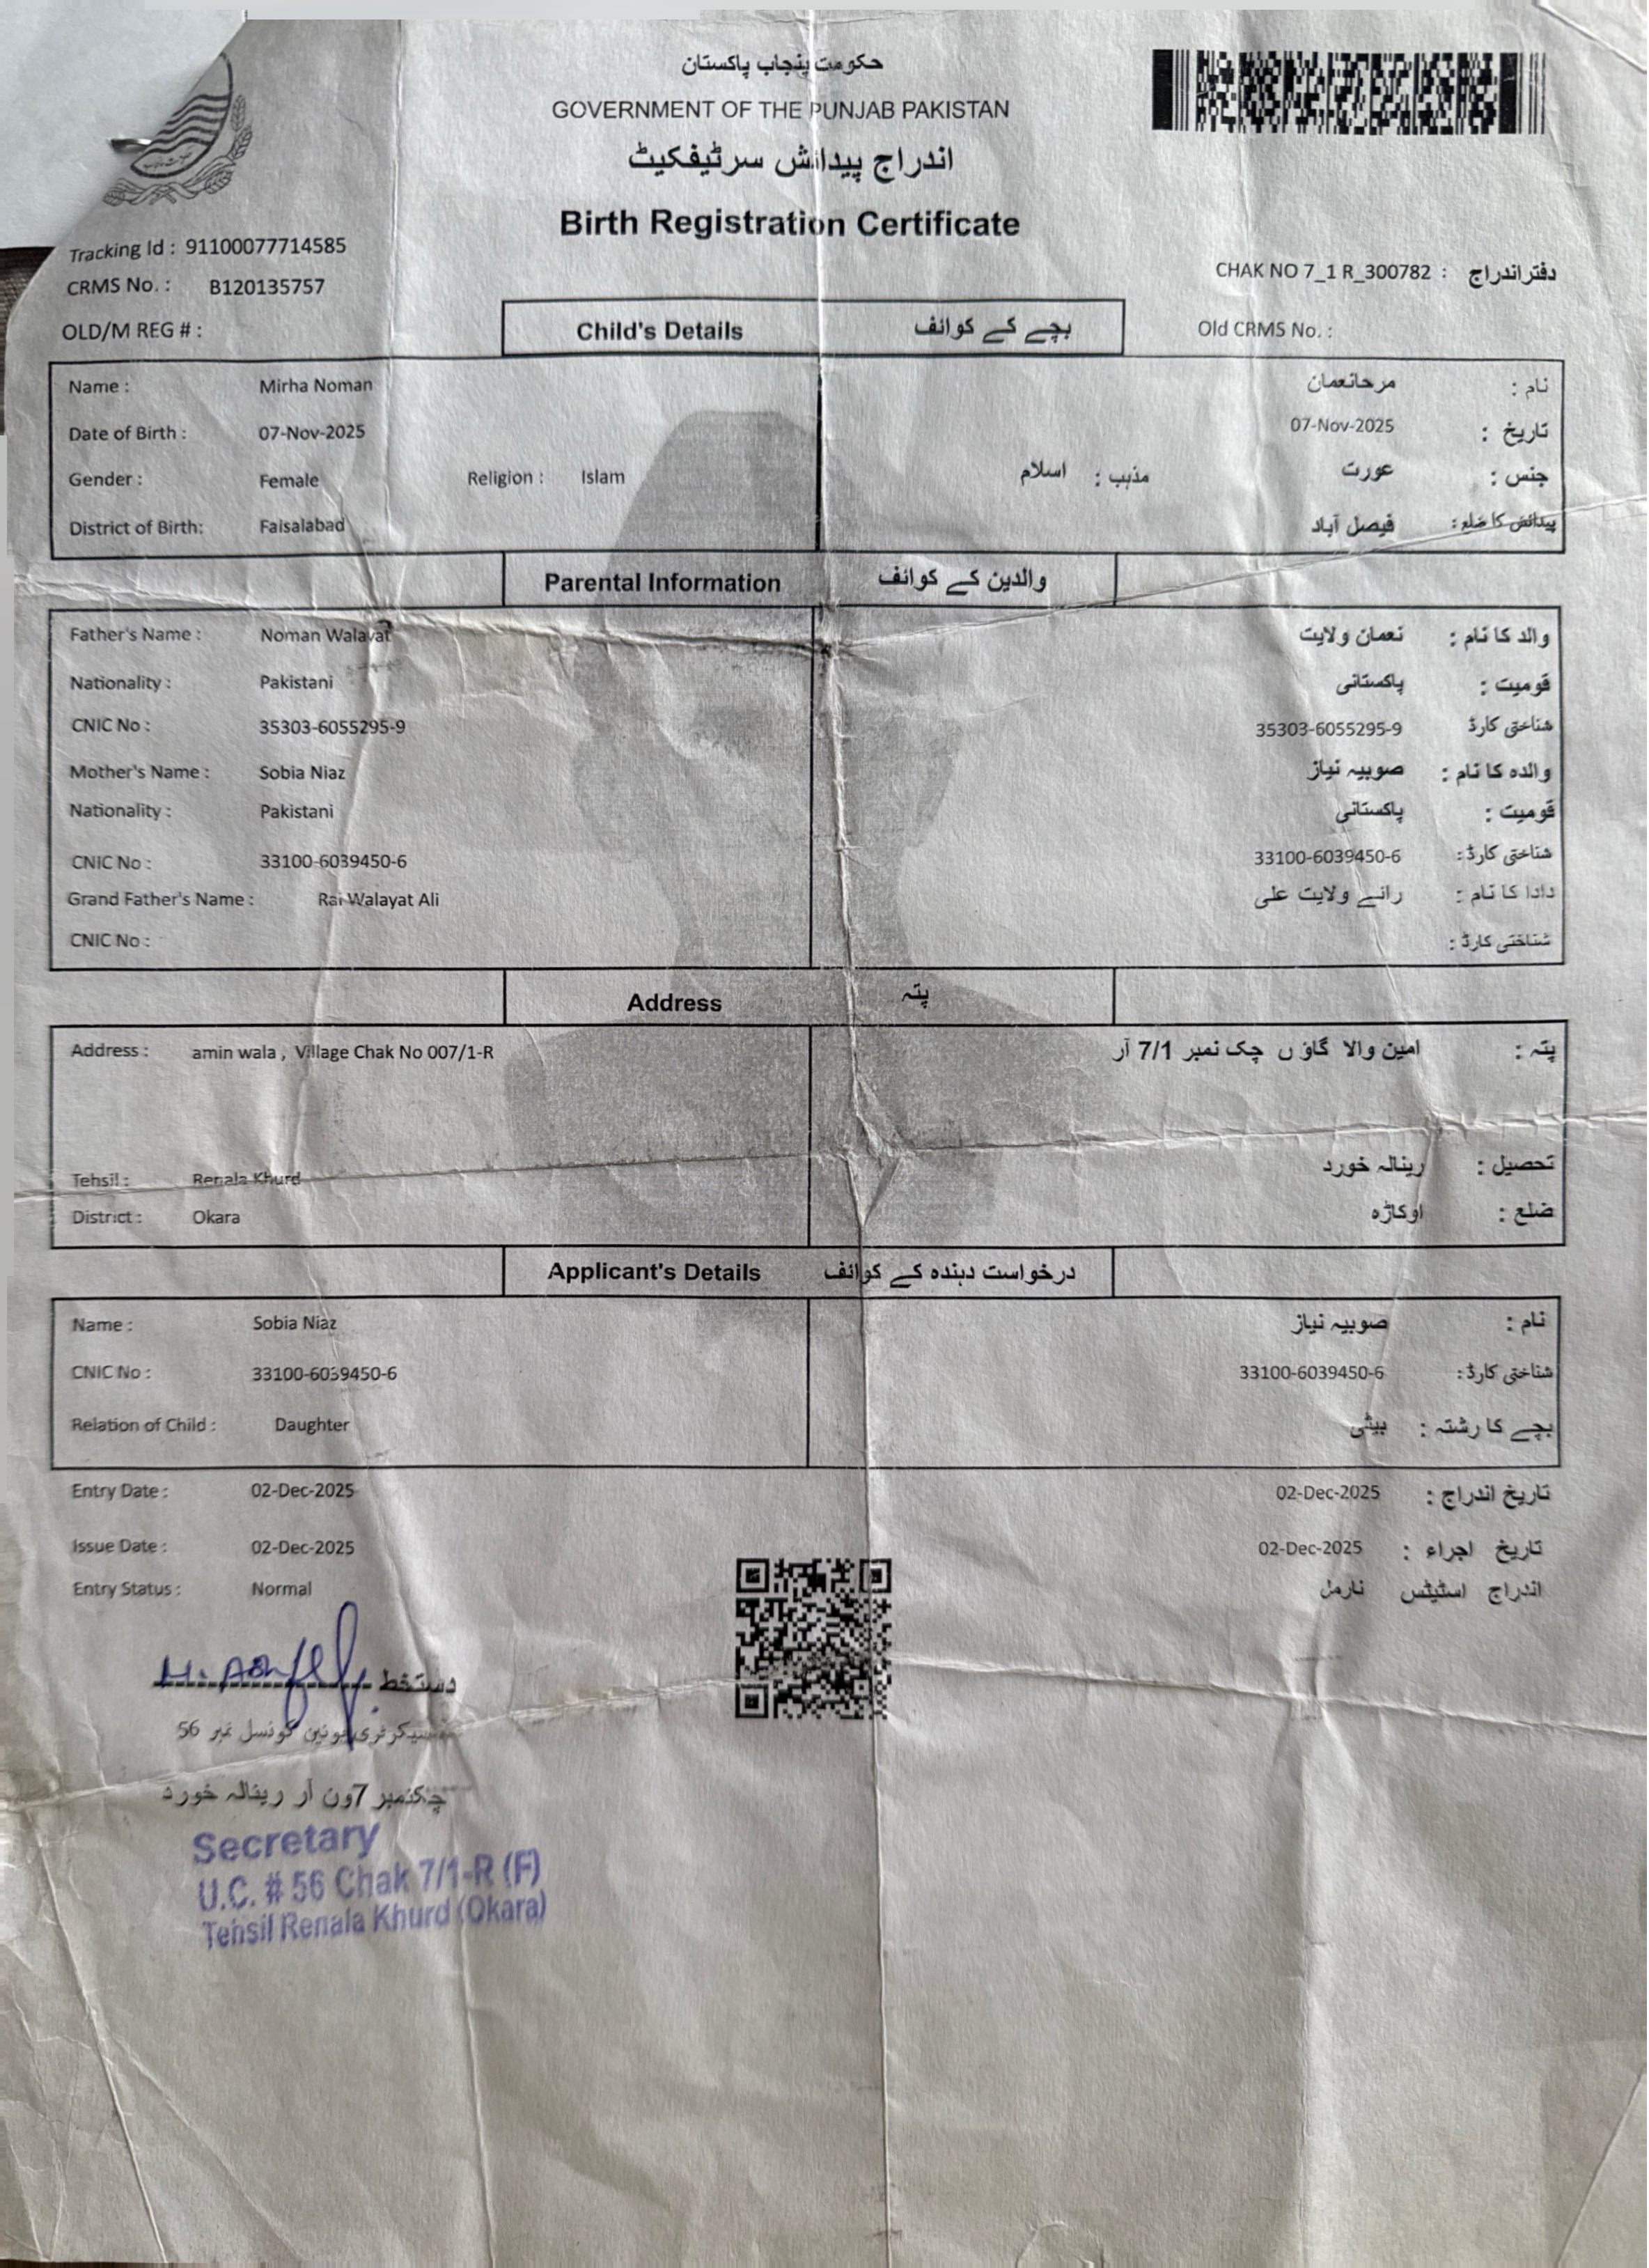 حکومت پنجاب پاکستان
GOVERNMENT OF THE PUNJAB PAKISTAN
اندراج پیدائش سرٹیفکیٹ
Birth Registration Certificate
Tracking Id : 91100077714585
CRMS No. : B120135757
CHAK NO 7_1 R_300782 : دفتراندراج
OLD/M REG # :
Old CRMS No. :
Child's Details بچے کے کوائف
Name : Mirha Noman مرحانعمان نام :
Date of Birth : 07-Nov-2025 07-Nov-2025 تاریخ :
Gender : Female Religion : Islam مذہب : اسلام جنس : عورت
District of Birth: Faisalabad پیدائش کا ضلع: فیصل آباد
Parental Information والدین کے کوائف
Father's Name : Noman Walayat والد کا نام : نعمان ولایت
Nationality : Pakistani قومیت : پاکستانی
CNIC No : 35303-6055295-9 35303-6055295-9 شناختی کارڈ
Mother's Name : Sobia Niaz والدہ کا نام : صوبیہ نیاز
Nationality : Pakistani قومیت : پاکستانی
CNIC No : 33100-6039450-6 33100-6039450-6 شناختی کارڈ:
Grand Father's Name : Rai Walayat Ali دادا کا نام : رائے ولایت علی
CNIC No : شناختی کارڈ :
Address پتہ
Address : amin wala , Village Chak No 007/1-R پتہ : امین والا گاؤ ں چک نمبر 7/1 آر
Tehsil : Renala Khurd تحصیل : رینالہ خورد
District : Okara ضلع : اوکاڑہ
Applicant's Details درخواست دہندہ کے کوائف
Name : Sobia Niaz نام : صوبیہ نیاز
CNIC No : 33100-6039450-6 33100-6039450-6 شناختی کارڈ:
Relation of Child : Daughter بچے کا رشتہ : بیٹی
Entry Date : 02-Dec-2025 02-Dec-2025 تاریخ اندراج :
Issue Date : 02-Dec-2025 02-Dec-2025 تاریخ اجراء :
Entry Status : Normal اندراج اسٹیٹس نارمل
دستخط
سیکرٹری یونین کونسل نمبر 56
چکنمبر 7ون آر رینالہ خورد
Secretary
U.C. # 56 Chak 7/1-R (F)
Tehsil Renala Khurd (Okara)